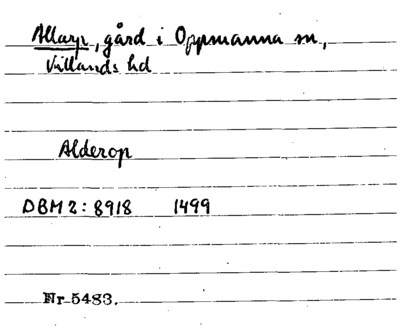 Allarp, gård i Oppmanna sn,
Villands hd
Alderop
DBM 2: 8918 1499
Nr 5483.